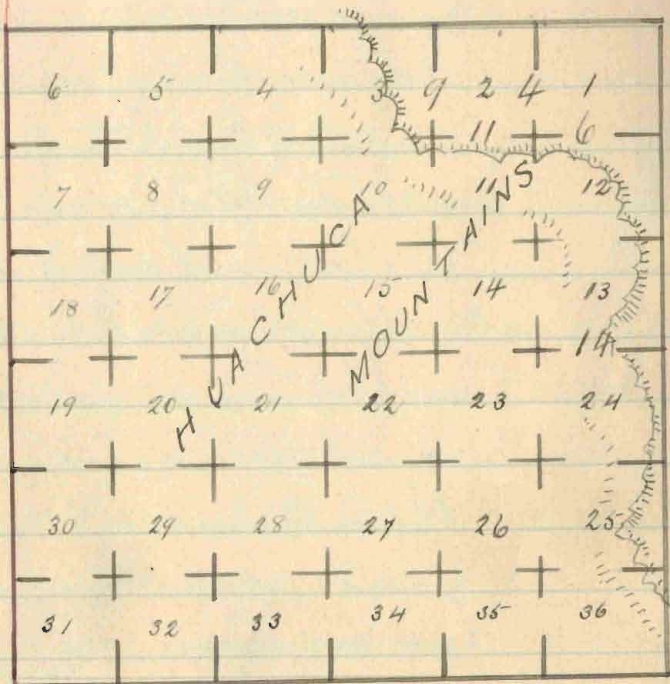 6 5 4 3 9 2 4 1
11 6
7 8 9 10 11 12
18 17 16 15 14 13
14
19 20 21 22 23 24
30 29 28 27 26 25
31 32 33 34 35 36
HUACHUCA
MOUNTAINS